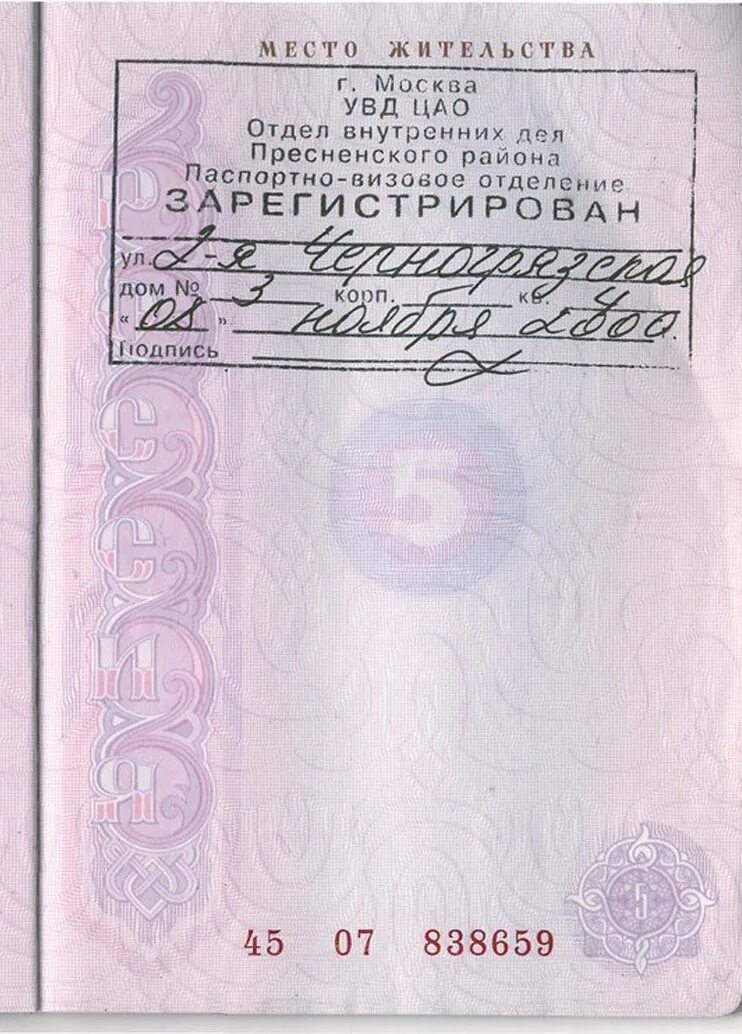 МЕСТО ЖИТЕЛЬСТВА
г. Москва
УВД ЦАО
Отдел внутренних дел
Пресненского района
Паспортно-визовое отделение
ЗАРЕГИСТРИРОВАН
ул. 2-я Черногрязская
дом № 3 корп. кв. 4
"08" ноября 2000.
Подпись
РОССИЯ
5
5
45 07 838659